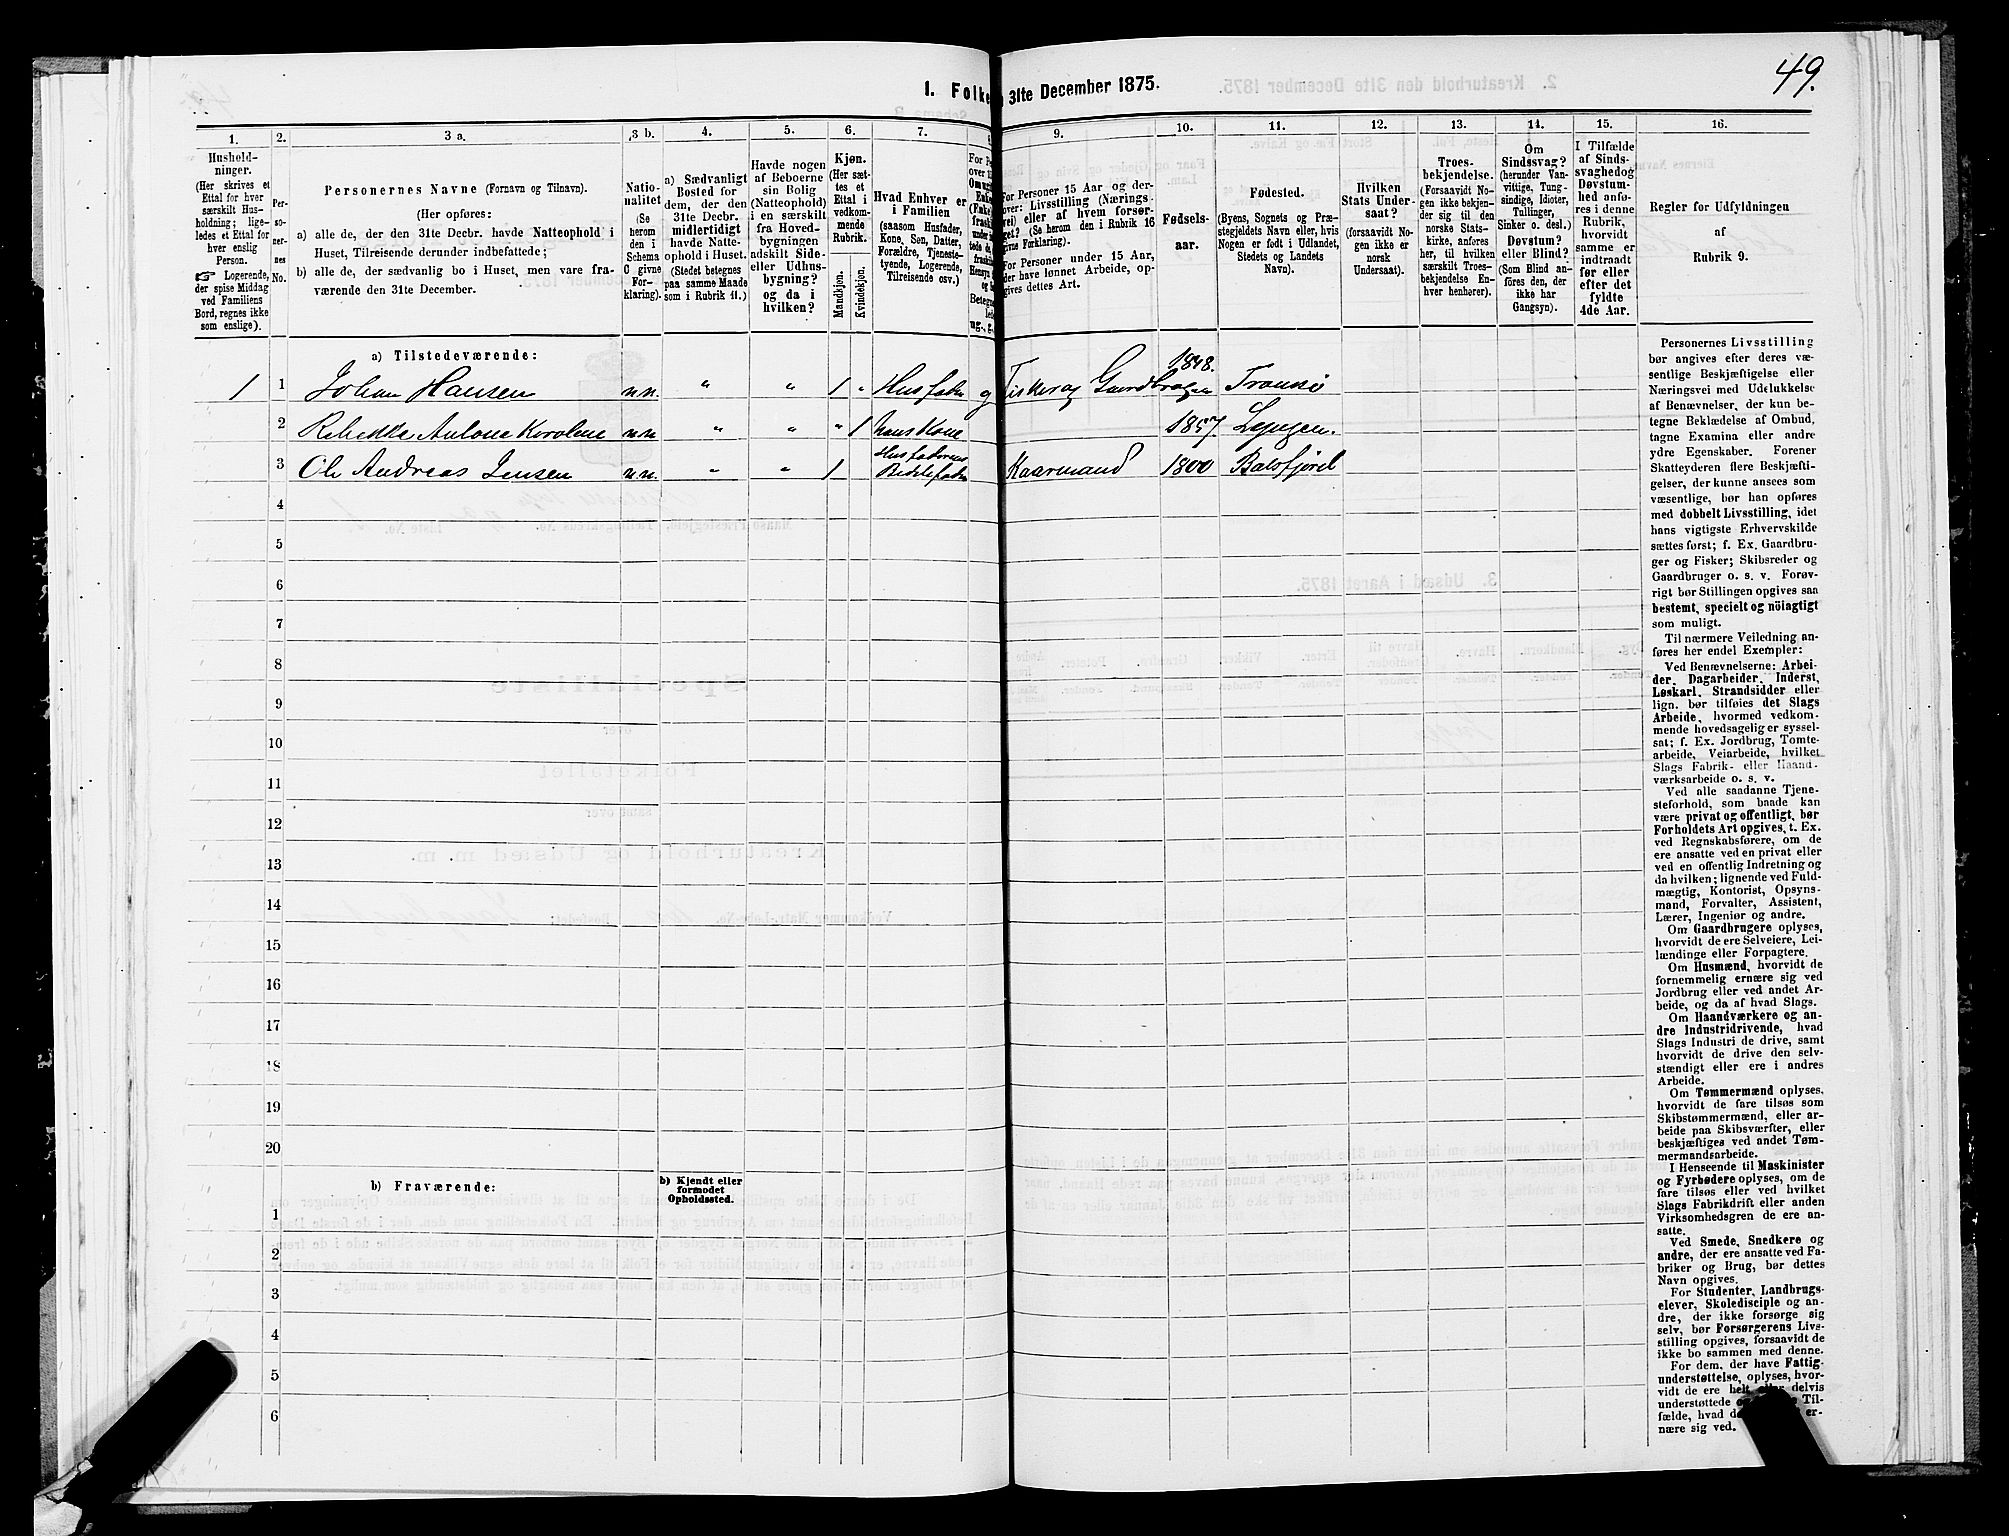 49.
1. Folke 31te December 1875.
1. 2. 3 a. 3 b. 4. 5. 6. 7. 9. 10. 11. 12. 13. 14. 15. 16.
Hushold-
ninger.
(Her skrives et
Ettal for hver
særskilt Hus-
holdning; lige-
ledes et Ettal for
hver enslig
Person.
☞ Logerende,
der spise Middag
ved Familiens
Bord, regnes ikke
som enslige).
Per-
so-
ner-
nes
No.
Personernes Navne (Fornavn og Tilnavn).
(Her opføres:
a) alle de, der den 31te Decbr. havde Natteophold i
Huset, Tilreisende derunder indbefattede;
b) alle de, der sædvanlig bo i Huset, men vare fra-
værende den 31te December.
Natio-
nalitet
(Se
herom
den i
Schema
C givne
For-
klaring).
a) Sædvanligt
Bosted for
dem, der den
31te Decbr.
midlertidigt
havde Natte-
ophold i Huset.
(Stedet betegnes
paa samme Maade
som i Rubrik 11.)
Havde nogen
af Beboerne
sin Bolig
(Natteophold)
i en særskilt
fra Hoved-
bygningen
adskilt Side-
eller Udhus-
bygning?
og da i
hvilken?
Kjøn.
(Her sæt-
tes et
Ettal i
vedkom-
mende
Rubrik.
Mandkjøn.
Kvindekjøn.
Hvad Enhver er
i Familien
(saasom Husfader,
Kone, Søn, Datter,
Forældre, Tjeneste-
tyende, Logerende,
Tilreisende osv.)
For Personer 15 Aar og der-
over: Livsstilling (Nærings-
vei) eller af hvem forsør-
get? (Se herom den i Rubrik 16
givne Forklaring).
For Personer under 15 Aar,
der have lønnet Arbeide, op-
gives dettes Art.
Fødsels-
aar.
Fødested.
(Byens, Sognets og Præ-
stegjeldets Navn eller, hvis
Nogen er født i Udlandet,
Stedets og Landets
Navn).
Hvilken
Stats Under-
saat?
(forsaavidt No-
gen ikke er
norsk
Undersaat).
Troes-
bekjendelse.
(Forsaavidt No-
gen ikke bekjen-
der sig til den
norske Stats-
kirke, anføres
her, til hvilken
særskilt Troes-
bekjendelse En-
hver henhører).
Om
Sindssvag?
(herunder Van-
vittige, Tung-
sindige, Idioter,
Tullinger,
Sinker o. desl.)
Døvstum?
eller Blind?
(Som Blind an-
føres den, der
ikke har
Gangsyn).
I Tilfælde
af Sinds-
svaghed og
Døvstum-
hed anfø-
res i denne
Rubrik,
hvorvidt
samme er
indtraadt
før eller
efter det
fyldte
4de Aar.
Regler for Udfyldningen
af
Rubrik 9.
a) Tilstedeværende:
1 1 Johan Hansen n.n. " " 1 " Husfader g Fisker og Gaardbruger 1848. Tromsø
2 Rebekka Antona Karoline n.n " " " 1 hans Kone 1857. Lyngen.
3 Ole Andreas Jensen n.n. " " 1 Husfaderens Kaarmand 1800 Balsfjord
4
5
6
7
8
9
10
11
12
13
14
15
16
17
18
19
20
b) Fraværende:
b) Kjendt eller
formodet
Opholdssted.
1
2
3
4
5
6
Personernes Livsstilling
bør angives efter deres væ-
sentlige Beskjæftigelse eller
Næringsvei med Udelukkelse
af Benævnelser, der kun be-
tegne Beklædelse af Ombud,
tagne Examina eller andre
ydre Egenskaber. Forener
Skatteyderen flere Beskjæfti-
gelser, der kunne ansees som
væsentlige, bør han opføres
med dobbelt Livsstilling, idet
hans vigtigste Erhvervskilde
sættes først; f. Ex. Gaardbru-
ger og Fisker; Skibsreder og
Gaardbruger o. s. v. Forøv-
rigt bør Stillingen opgives saa
bestemt, specielt og nöiagtigt
som muligt.
Til nærmere Veiledning an-
føres her endel Exempler:
Ved Benævnelserne: Arbei-
der, Dagarbeider, Inderst,
Løskarl, Strandsidder eller
lign. bør tilføies det Slags
Arbeide, hvormed vedkom-
mende hovedsagelig er syssel-
sat; f. Ex. Jordbrug, Tomte-
arbeide, Veiarbeide, hvilket
Slags Fabrik- eller Haand-
værksarbeide o. s. v.
Ved alle saadanne Tjene-
steforhold, som baade kan
være privat og offentligt, bør
Forholdets Art opgives, t. Ex.
ved Regnskabsførere, om de
ere ansatte ved en privat eller
ved en offentlig Indretning og
da hvilken; lignende ved Fuld-
mægtig, Kontorist, Opsyns-
mand, Forvalter, Assistent,
Lærer, Ingeniør og andre.
Om Gaardbrugere oplyses,
hvorvidt de ere Selveiere, Lei-
lændinge eller Forpagtere.
Om Husmænd, hvorvidt de
fornemmelig ernære sig ved
Jordbrug eller ved andet Ar-
beide, og da af hvad Slags.
Om Haandværkere og an-
dre Industridrivende, hvad
Slags Industri de drive, samt
hvorvidt de drive den selv-
stændigt eller ere i andres
Arbeide.
Om Tømmermænd oplyses,
hvorvidt de fare tilsøs som
Skibstømmermænd, eller ar-
beide paa Skibsværfter, eller
beskjæftiges ved andet Tøm-
mermandsarbeide.
I Henseende til Maskinister
og Fyrbødere oplyses, om de
fare tilsøs eller ved hvilket
Slags Fabrikdrift eller anden
Virksomhedsgren de ere an-
satte.
Ved Smede, Snedkere og
andre, der ere ansatte ved Fa-
briker og Brug, bør dettes
Navn opgives.
For Studenter, Landbrugs-
elever, Skoledisciple og an-
dre, der ikke forsørge sig
selv, bør Forsørgerens Livs-
stilling opgives, forsaavidt de
ikke bo sammen med denne.
For dem, der have Fattig-
understøttelse, oplyses, hvor-
vidt de ere helt eller delvis
understøttede Til-
fælde, hvad er-
nære sig ved.